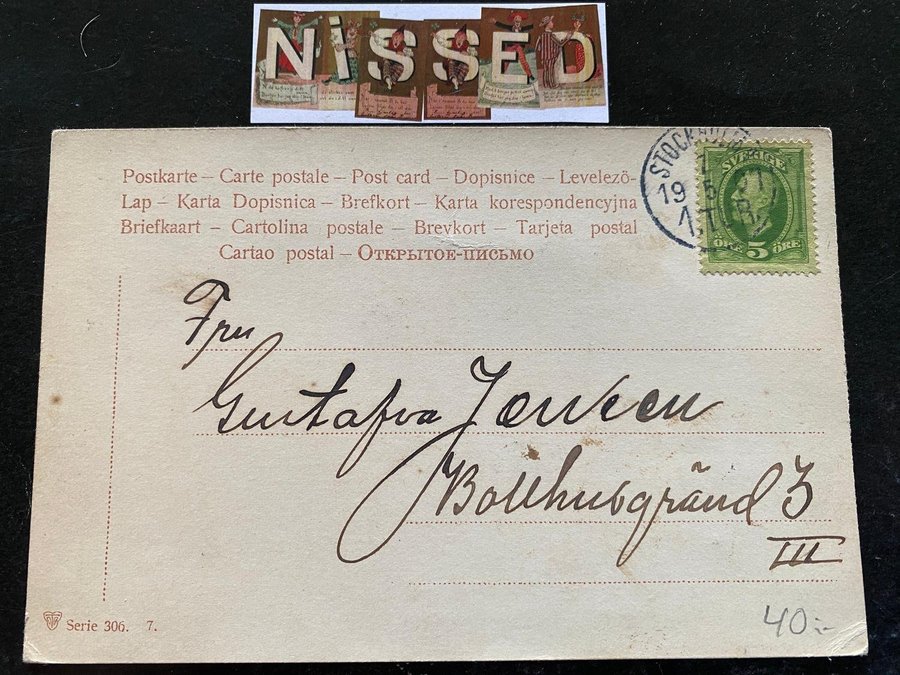 NiSSED
STOCKHOLM
SVERIGE
ÖRE 5 ÖRE
Postkarte – Carte postale – Post card – Dopisnice – Levelezö-
Lap – Karta Dopisnica – Brefkort – Karta korespondencyjna
Briefkaart – Cartolina postale – Brevkort – Tarjeta postal
Cartao postal – Открытое-письмо
Fru
Gustafva Jansson
Bollhusgränd 3
III
Serie 306. 7.
40:-